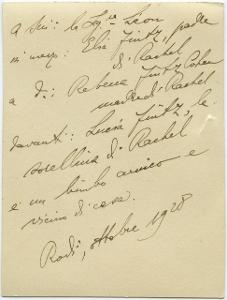 a sin: la Sig.ra Leon
in mezz: Elia Jintz, padre
di Rachel
a d.: Rebecca Jintz Cohen
madre di Rachel
davanti: Lucia Jintz, la
sorellina di Rachel
e un bimbo amico e
vicino di casa.
Rodi, ottobre 1928